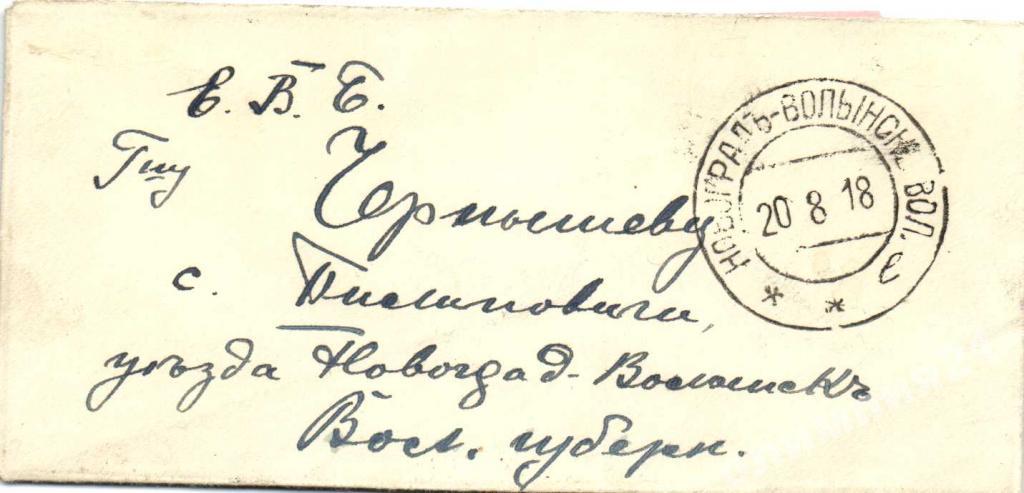 Е. В. Б.
Гну
Чернышеву
с. Пилиповичи,
уѣзда Новоград-Волынскъ
Вол. губерн.
НОВОГРАДЪ-ВОЛЫНСК. ВОЛ. е
20 8 18
* *